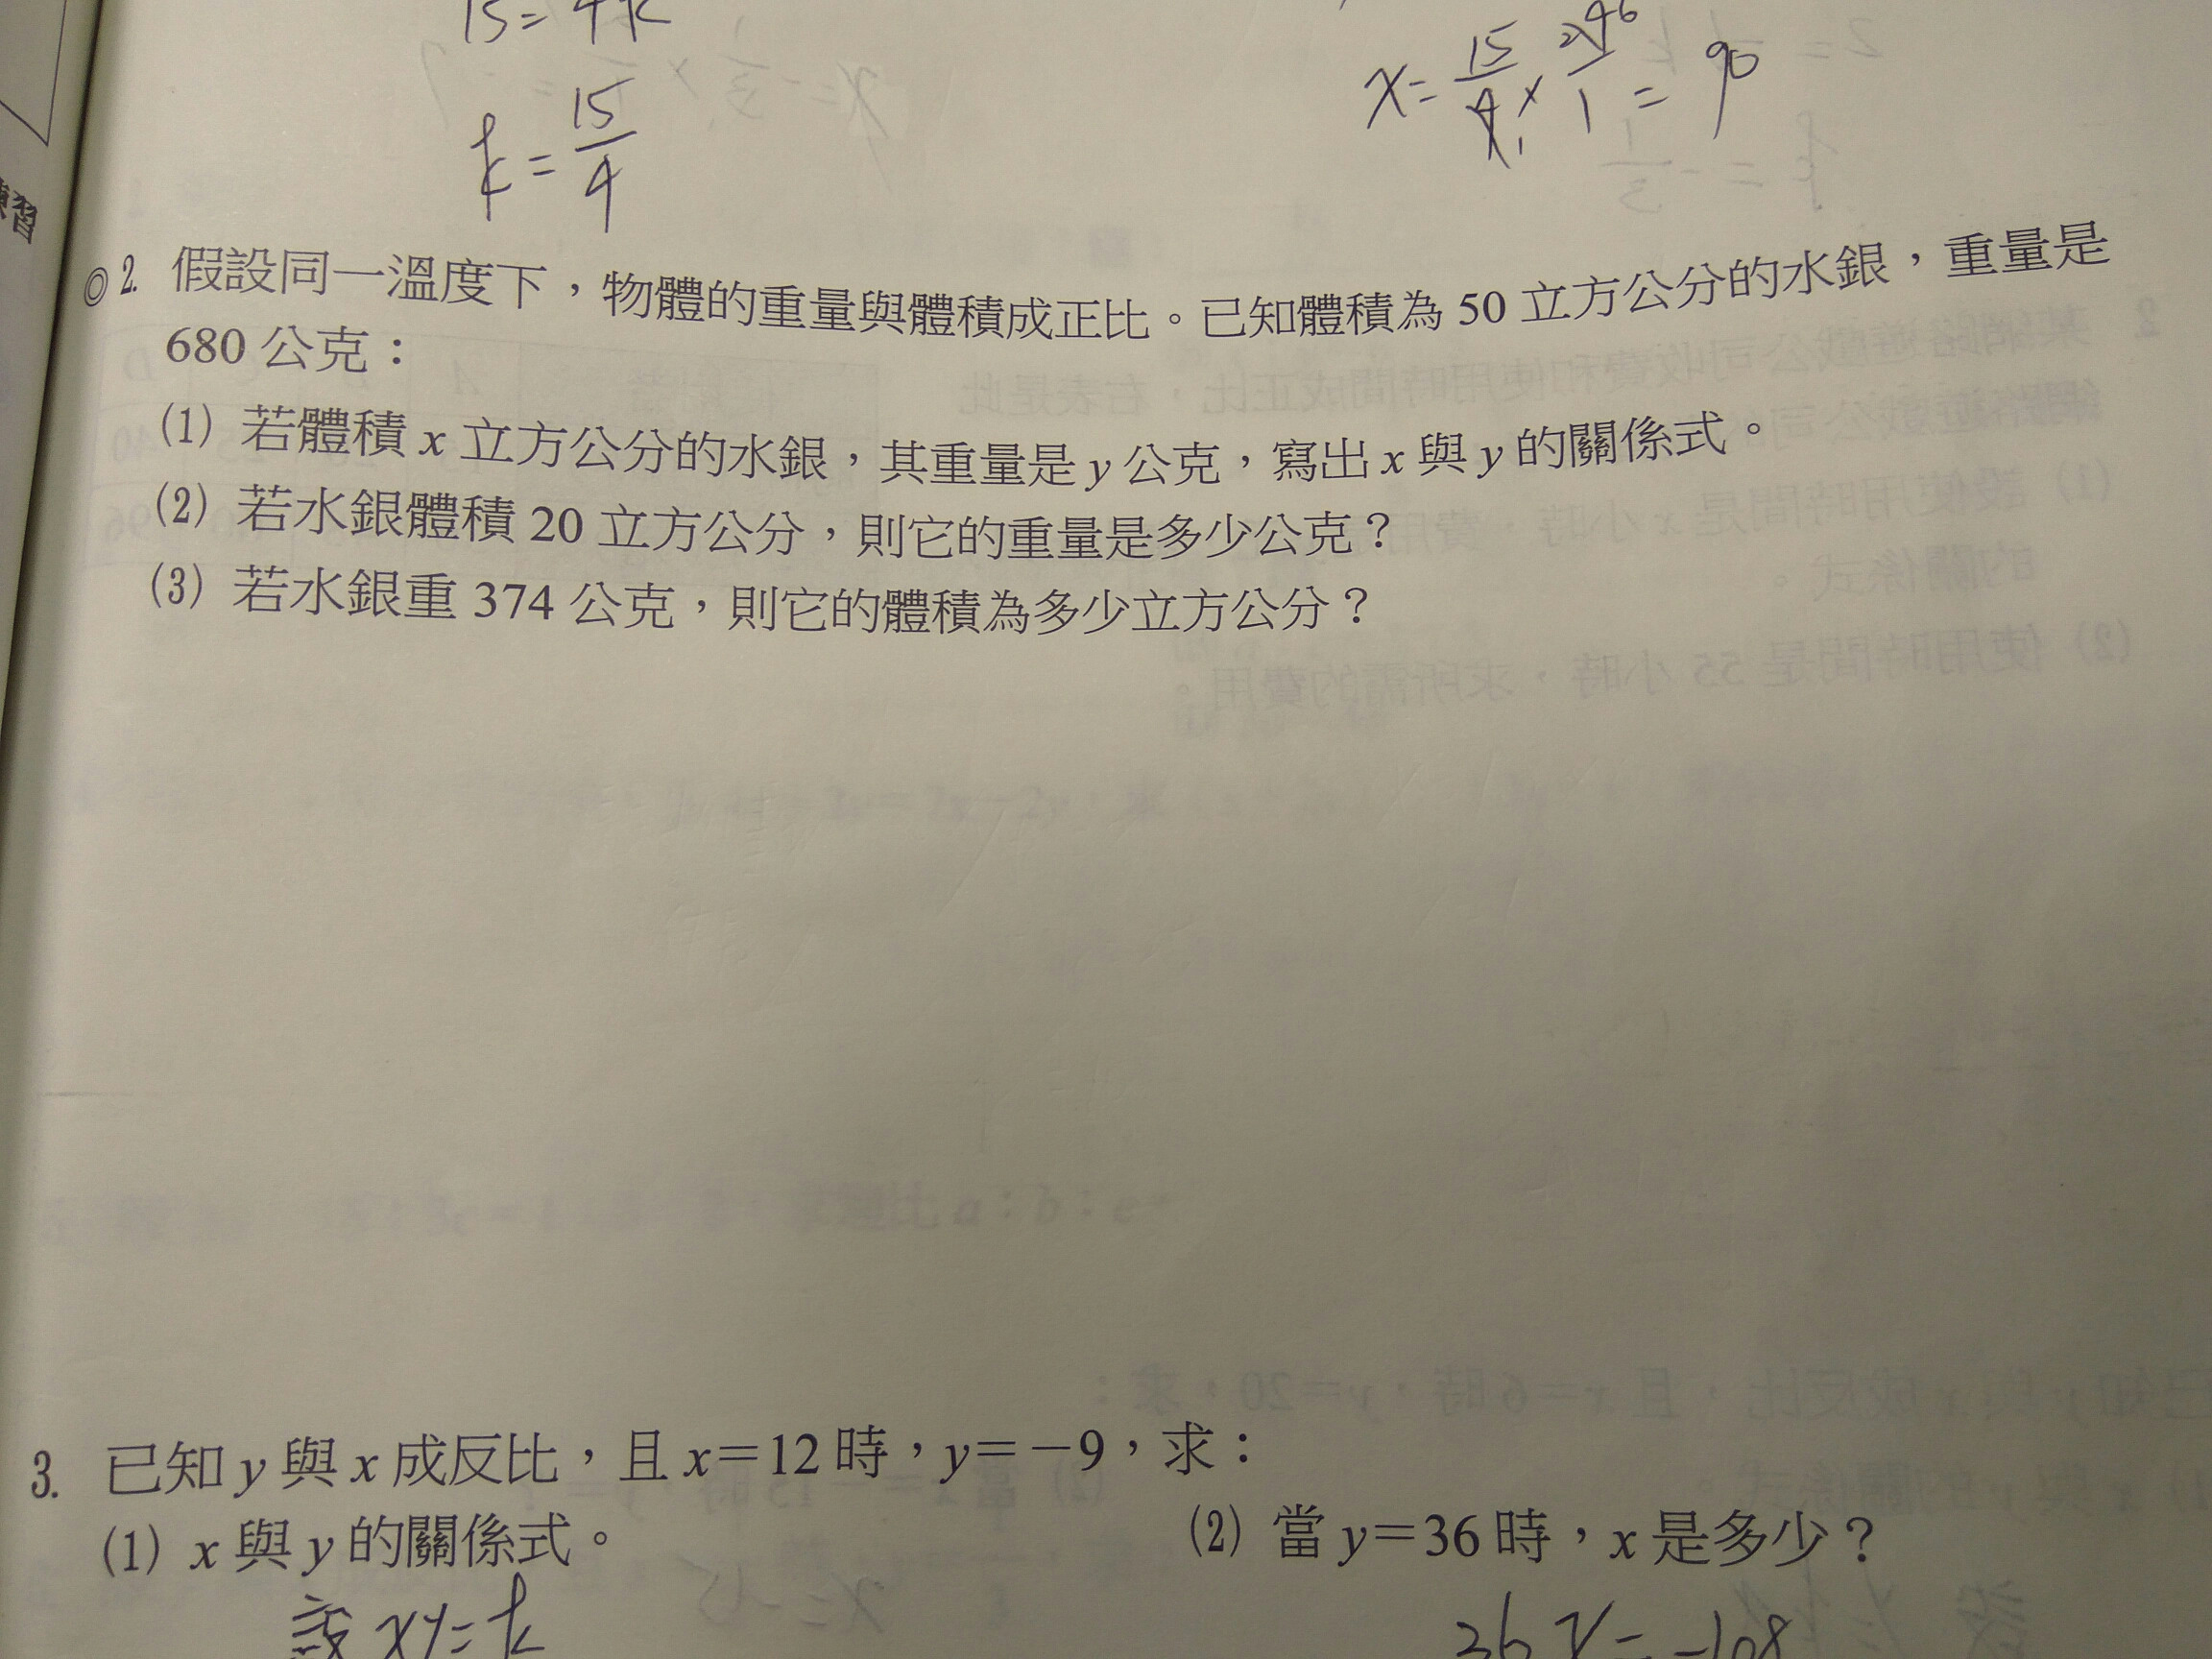 15=4k
k=15/4
x=15/4×24 6/1=90
習
◎2. 假設同一溫度下，物體的重量與體積成正比。已知體積為 50 立方公分的水銀，重量是
680 公克：
(1) 若體積 x 立方公分的水銀，其重量是 y 公克，寫出 x 與 y 的關係式。
(2) 若水銀體積 20 立方公分，則它的重量是多少公克？
(3) 若水銀重 374 公克，則它的體積為多少立方公分？
3. 已知 y 與 x 成反比，且 x＝12 時，y＝－9，求：
(1) x 與 y 的關係式。
(2) 當 y＝36 時，x 是多少？
設 xy=k
36x=-108